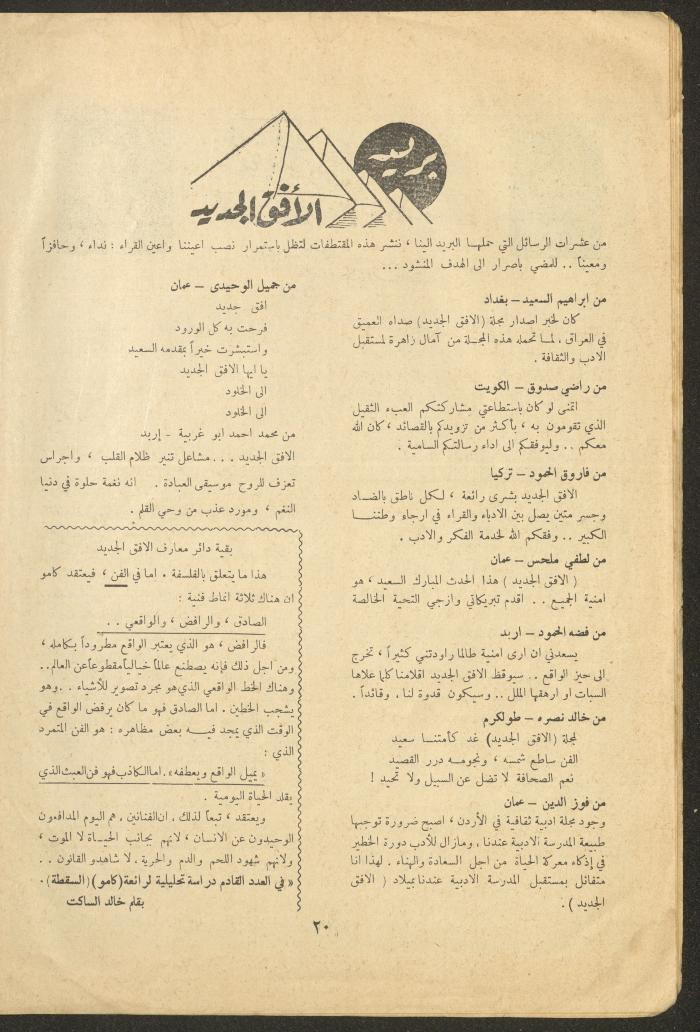 بريد
الأفق الجديد
من عشرات الرسائل التي حملها البريد الينا ، ننشر هذه المقتطفات لتظل باستمرار نصب اعيننا واعين القراء : نداء ، وحافزاً
ومعيناً .. للمضي باصرار الى الهدف المنشود ...
من ابراهيم السعيد – بغداد
كان لخبر اصدار مجلة (الافق الجديد) صداه العميق
في العراق ، لما تحمله هذه المجلة من آمال زاهرة لمستقبل
الادب والثقافة .
من راضي صدوق – الكويت
اتمنى لو كان باستطاعتي مشاركتكم العبء الثقيل
الذي تقومون به ، بأكثر من تزويدكم بالقصائد ، كان الله
معكم .. وليوفقكم الى اداء رسالتكم السامية .
من فاروق الحمود – تركيا
الافق الجديد بشرى رائعة ، لكل ناطق بالضاد
وجسر متين يصل بين الادباء والقراء في ارجاء وطننا
الكبير .. وفقكم الله لخدمة الفكر والادب .
من لطفي ملحس – عمان
( الافق الجديد ) هذا الحدث المبارك السعيد ، هو
امنية الجميع .. اقدم تبريكاتي وازجي التحية الخالصة
من فضه الحمود – اربد
يسعدني ان ارى امنية طالما راودتني كثيراً ، تخرج
الى حيز الواقع .. سيوقظ الافق الجديد اقلامنا كلما علاها
السبات او ارهقها الملل .. وسيكون قدوة لنا ، وقائداً .
من خالد نصره – طولكرم
لمجلة (الافق الجديد) غد كأمتنا سعيد
الفن ساطع شمسه ، ونجومه درر القصيد
نعم الصحافة لا تضل عن السبيل ولا تحيد !
من فوز الدين – عمان
وجود مجلة ادبية ثقافية في الأردن ، اصبح ضرورة توجبها
طبيعة المدرسة الادبية عندنا ، ومازال للأدب دورة الخطير
في إذكاء معركة الحياة من اجل السعادة والهناء . لهذا انا
متفائل بمستقبل المدرسة الادبية عندنا بميلاد ( الافق
الجديد ) .
من جميل الوحيدى – عمان
افق جديد
فرحت به كل الورود
واستبشرت خيراً بمقدمه السعيد
يا ايها الافق الجديد
الى الخلود
الى الخلود
من محمد احمد ابو غربية - إربد
الافق الجديد ... مشاعل تنير ظلام القلب ، واجراس
تعزف للروح موسيقى العبادة . انه نغمة حلوة في دنيا
النغم ، ومورد عذب من وحي القلم .
بقية دائر معارف الافق الجديد
هذا ما يتعلق بالفلسفة . اما في الفن ، فيعتقد كامو
ان هناك ثلاثة انماط فنية :
الصادق ، والرافض ، والواقعي ..
فالرافض ، هو الذي يعتبر الواقع مطروداً بكامله ،
ومن اجل ذلك فإنه يصطنع عالماً خيالياً مقطوعاً عن العالم ..
وهناك الخط الواقعي الذي هو مجرد تصوير للأشياء .. وهو
يشجب الخطين . اما الصادق فهو ما كان يرفض الواقع في
الوقت الذي يمجد فيه بعض مظاهره : هو الفن المتمرد
الذي :
« يميل الواقع ويعطفه » . اما الكاذب فهو فن العبث الذي
يقلد الحياة اليومية .
ويعتقد ، تبعاً لذلك ، ان الفنانين ، هم اليوم المدافعون
الوحيدون عن الانسان ، لانهم بجانب الحياة لا الموت ،
ولانهم شهود اللحم والدم والحرية ، لا شاهدو القانون ..
« في العدد القادم دراسة تحليلية لرائعة (كامو) (السقطة) .
بقلم خالد الساكت
٢٠